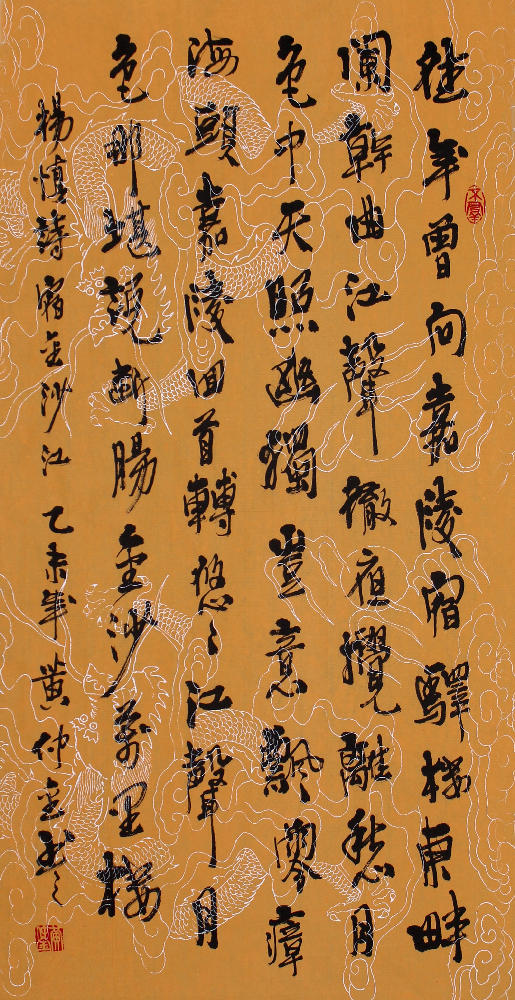 徃年曾向嘉陵宿驛樓東畔
闌幹曲江聲徹夜攪離愁月
色中天照幽獨豈意飄零瘴
海頭嘉陵回首轉悠々江聲月
色那堪説斷腸金沙萬里樓
楊慎詩宿金沙江乙未年黃仲金书之